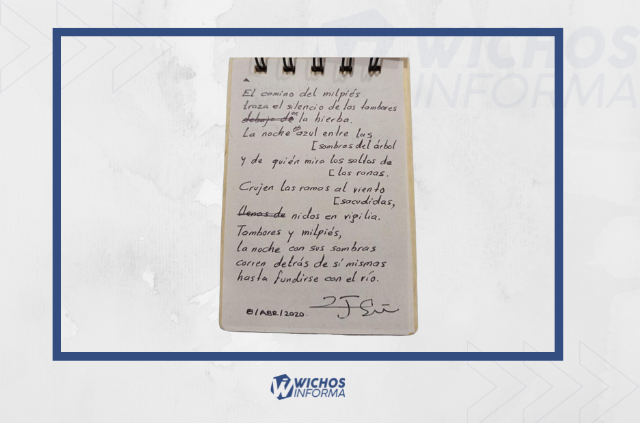 WICHOS
INFORMA
El camino del milpiés
traza el silencio de los tambores
debajo de en la hierba.
La noche es azul entre las
[sombras del árbol
y de quién mira los saltos de
[las ranas.
Crujen las ramas al viento
[sacudidas,
llenas de nidos en vigilia.
Tambores y milpiés,
la noche con sus sombras
corren detrás de sí mismas
hasta fundirse con el río.
8/ABR/2020
WICHOS
INFORMA